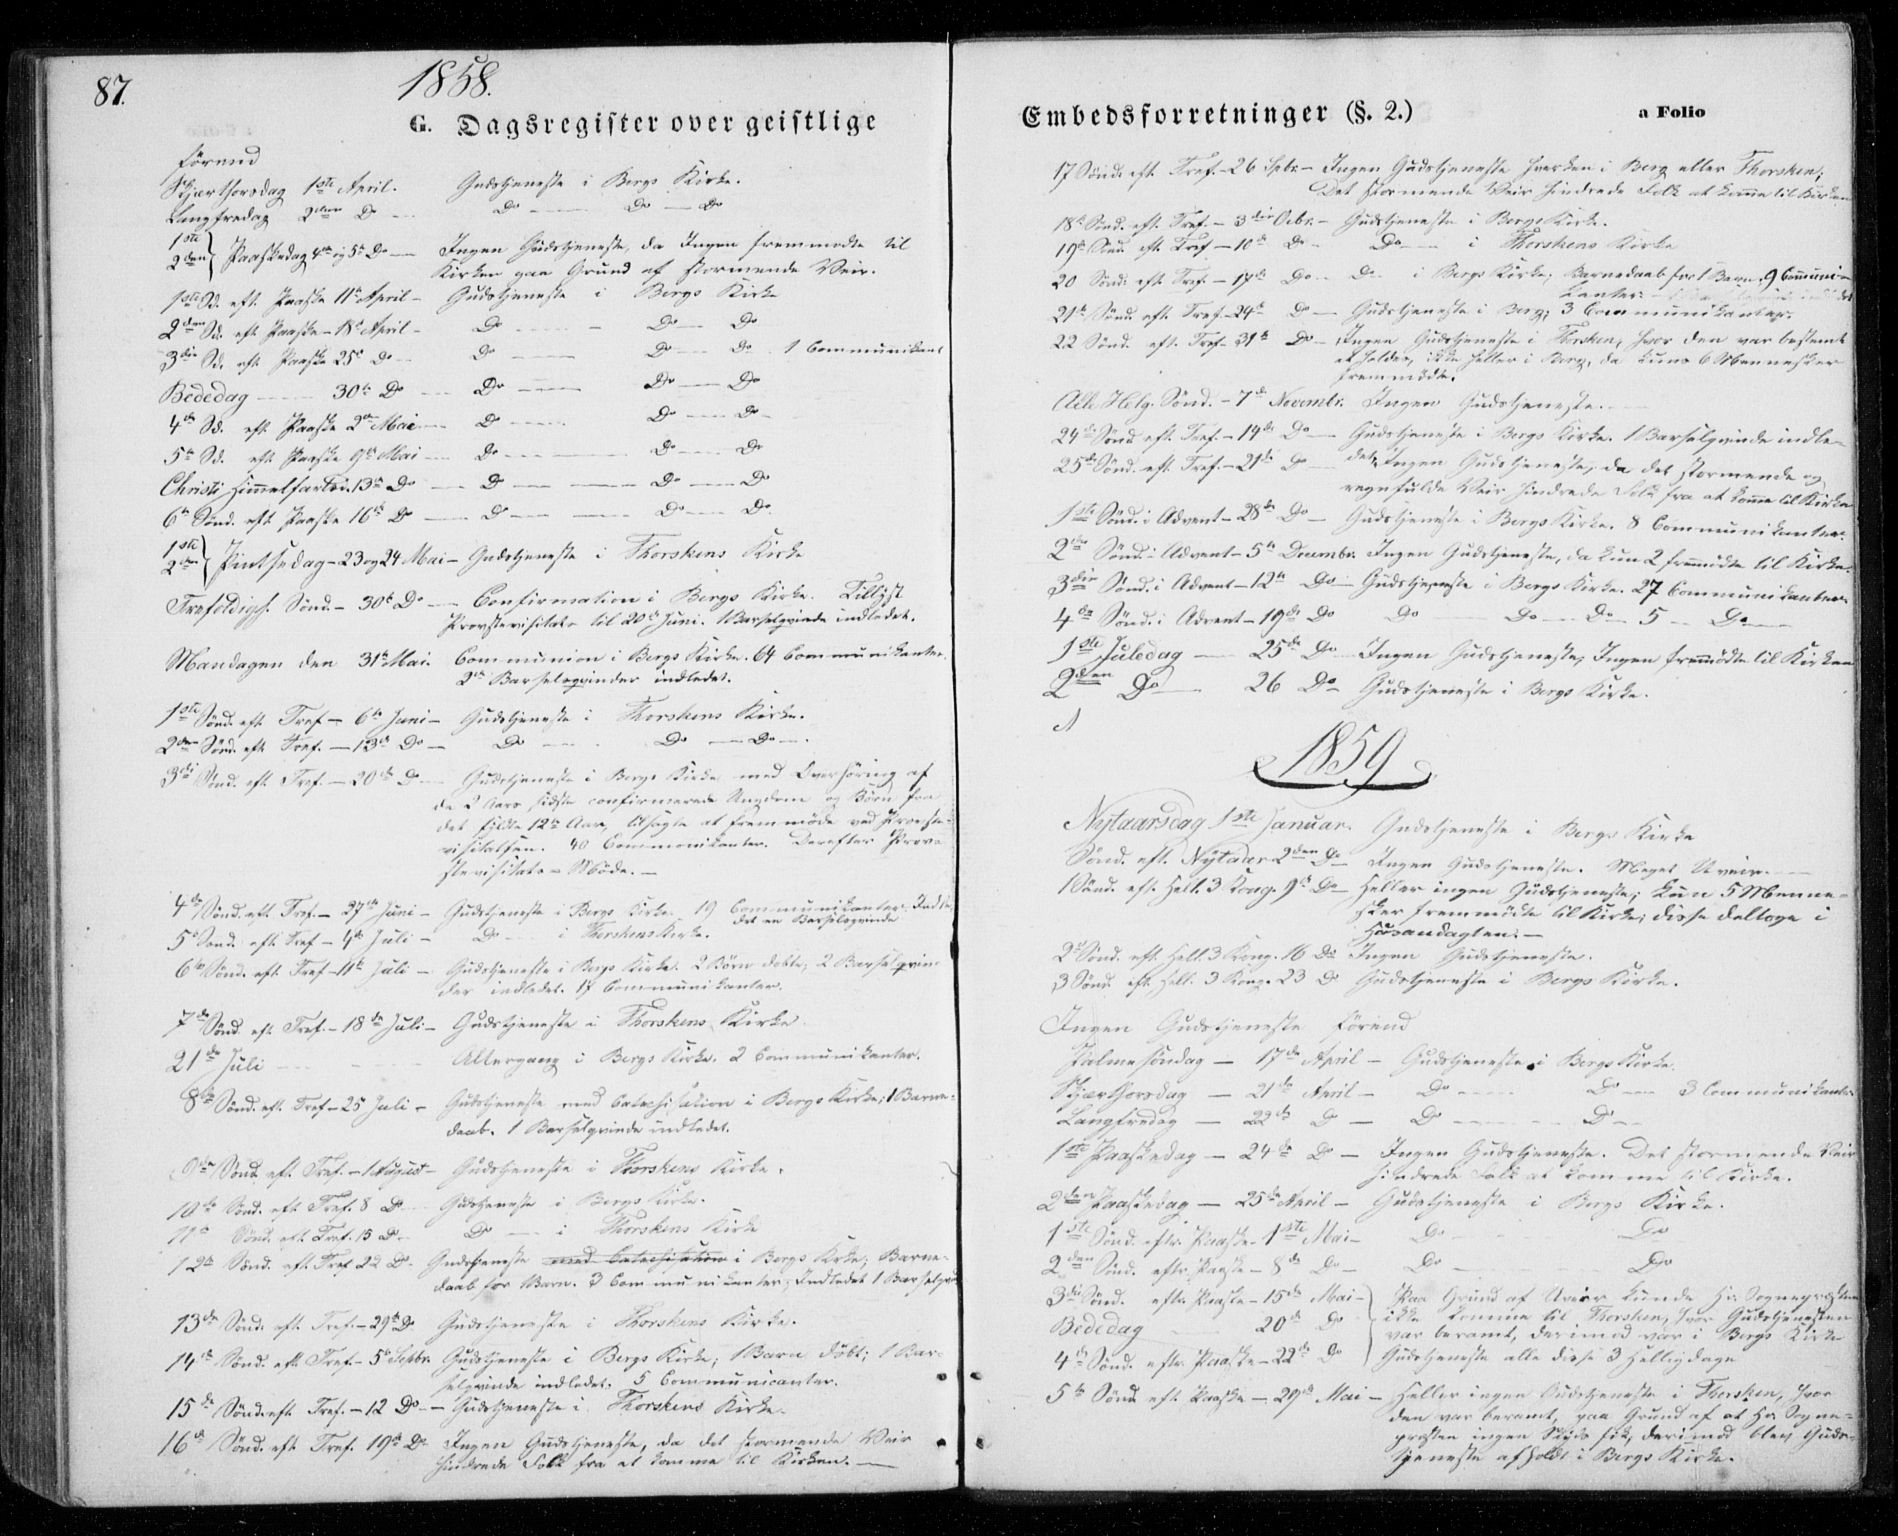 87.
1858.
G. Dagsregister over geistlige
førend
Skjærthorsdag 1ste April. Gudstjeneste i Bergs Kirke.
Langfredag 2den Do Do Do Do
1ste
2den } Paaskedag 4de og 5te Do Ingen Gudstjeneste, da Ingen fremmødte til
Kirken paa Grund af stormende Veir.
1ste Sd. eft. Paaske 11te April - Gudstjeneste i Bergs Kirke
2den Sd. eft. Paaske - 18de April - Do Do Do
3die Sd. eft. Paaske 25de Do Do Do Do 1 Communikant
Bededag 30te Do Do Do Do
4de Sd. eft. Paaske 2den Mai Do Do Do
5te Sd. eft. Paaske 9de Mai Do Do Do
Christi Himmelfartsd. 13de Do Do Do Do
6te Sønd. eft. Paaske 16de Do Do Do Do
1ste
2den } Pintsedag - 23 og 24 Mai - Gudstjeneste i Thorskens Kirke
Trefoldigh. Sønd. - 30te Do Confirmation i Bergs Kirke. Tillyst
Provstevisitats til 20de Juni. 1 Barselqvinde indledet.
Mandagen den 31te Mai. Communion i Bergs Kirke. 64 Communikanter.
2de Barselqvinder indledet.
1ste Sønd. eft. Tref. - 6te Juni - Gudstjeneste i Thorskens Kirke.
2den Sønd. eft. Tref. - 13de Do - Do Do Do
3die Sønd. eft. Tref. - 20de Do - Gudstjeneste i Bergs Kirke med Overhøring af
de 2 Aars sidste confirmerede Ungdom og Børn fra
det fyldte 12te Aar, tilsagte at fremmøde ved Provste-
visitatsen. 40 Communikanter. Derefter Prov-
stevisitats-Møde. -
4de Sønd. eft. Tref. - 27de Juni - Gudstjeneste i Bergs Kirke. 19 Communikanter. Indle-
det en Barselqvinde
5te Sønd. eft. Tref - 4de Juli - Do i Thorskens Kirke.
6te Sønd. eft. Tref - 11te Juli - Gudstjeneste i Bergs Kirke. 2 Børn døbte; 2 Barselqvin
der indledet. 17 Communikanter.
7de Sønd. eft. Tref. - 18de Juli - Gudstjeneste i Thorskens Kirke.
21de Juli Altergang i Bergs Kirke. 2 Communikanter.
8de Sønd. eft. Tref - 25 Juli - Gudstjeneste med Catechisation i Bergs Kirke; 1 Barne-
daab. 1 Barselqvinde indledet.
9de Sønd. eft. Tref. - 1 August - Gudstjeneste i Thorskens Kirke.
10de Sønd. eft. Tref. 8 Do Gudstjeneste i Bergs Kirke.
11te Sønd. eft. Tref. 15 Do. Do i Thorskens Kirke
12te Sønd. eft. Tref 22 Do. Gudstjeneste med Catechisation i Bergs Kirke; Barne-
daab for 1 Barn. 3 Communikanter; Indledet 1 Barselqv
13de Sønd. eft. Tref. - 29de Do Gudstjeneste i Thorskens Kirke.
14de Sønd. eft. Tref. - 5te Septbr. Gudstjeneste i Bergs Kirke; 1 Barn døbt; 1 Bar-
selqvinde indledet. 5 Communicanter.
15de Sønd. eft. Tref. - 12 Do - Gudstjeneste i Thorskens Kirke.
16de Sønd. eft. Tref. 19de Do Ingen Gudstjeneste, da det stormende Veir
hindrede Folk fra at komme til Kirken.
Embedsforretninger (§. 2.)
a Folio
17 Sønd. eft. Tref. - 26 Sptbr. - Ingen Gudstjeneste hverken i Berg eller Thorsken;
Det stormende Veir hindrede Folk at komme til Kirken
18de Sønd. eft. Tref. - 3die Octbr. - Gudstjeneste i Bergs Kirke.
19de Sønd. eft. Tref - 10de Do - Do i Thorskens Kirke
20 Sønd. eft. Tref. - 17de Do Do i Bergs Kirke; Barnedaab for 1 Barn. 9 Communi-
kanter.
21de Sønd. eft. Tref. - 24de Do - Gudstjeneste i Berg; 3 Communikanter.
22 Sønd. eft. Tref. 31te Do - Ingen Gudstjeneste i Thorsken, hvor den var bestemt
at holdes, ikke heller i Berg, da kuns 6 Mennesker
fremmødte.
Alle Helg. Sønd. - 7de Novembr. Ingen Gudstjeneste.
24de Sønd. eft. Tref. - 14de Do Gudstjeneste i Bergs Kirke. 1 Barselqvinde indle-
det.
25de Sønd. eft. Tref. - 21de Do Ingen Gudstjeneste, da det stormende og
regnfulde Veir hindrede Folk fra at komme til Kirke
1ste Sønd. i Advent - 28de Do - Gudstjeneste i Bergs Kirke. 8 Communikanter.
2den Sønd. i Advent - 5te Decembr. Ingen Gudstjeneste, da kun 2 fremmødte til Kirke.
3die Sønd. i Advent - 12te Do - Gudstjeneste i Bergs Kirke. 27 Communikanter.
4de Sønd. i Advent - 19de Do Do Do Do 5 Do
1ste Juledag 25de Do Ingen Gudstjeneste, Ingen fremmødte til Kirken
2den Do 26 Do Gudstjeneste i Bergs Kirke.
1859
Nytaarsdag 1ste Januar. Gudstjeneste i Bergs Kirke
Sønd. eft. Nytaar 2den Do Ingen Gudstjeneste. Meget Uveir.
1 Sønd. eft. Hell. 3 Kong. 9de Do - Heller ingen Gudstjeneste; kun 5 Menne-
sker fremmødte til Kirke; disse deltoge i
Husandagten. -
2 Sønd. eft. Hell. 3 Kong. 16 Do Ingen Gudstjeneste.
3 Sønd. eft. Hell. 3 Kong. 23 Do Gudstjeneste i Bergs Kirke.
Ingen Gudstjeneste førend
Palmesøndag - 17de April - Gudstjeneste i Bergs Kirke.
Skjærthorsdag - 21de April - Do Do 3 Communikanter
Langfredag - 22de Do - Do Do
1ste Paaskedag - 24de Do - Ingen Gudstjeneste. Det stormende Veir
hindrede Folk at komme til Kirke.
2den Paaskedag - 25de April - Gudstjeneste i Bergs Kirke.
1ste Sønd. eftr. Paaske - 1ste Mai - Do Do
2den Sønd. eftr. Paaske - 8de Do - Do Do
3die Sønd. eftr. Paaske - 15de Mai - } Paa Grund af Uveir kunde Hr. Sognepræsten
Bededag 20de Do ikke komme til Thorsken, hvor Gudstjenesten
var beramt, derimod var i Bergs Kirke
4de Sønd. eftr. Paaske - 22de Do Gudstjeneste alle disse 3 Helligdage
5te Sønd. eft. Paaske - 29de Mai - Heller ingen Gudstjeneste i Thorsken, hvor
den var beramt, paa Grund af at Hr. Sogne-
præsten ingen Skyds fik; derimod blev Guds-
tjeneste afholdt i Bergs Kirke.